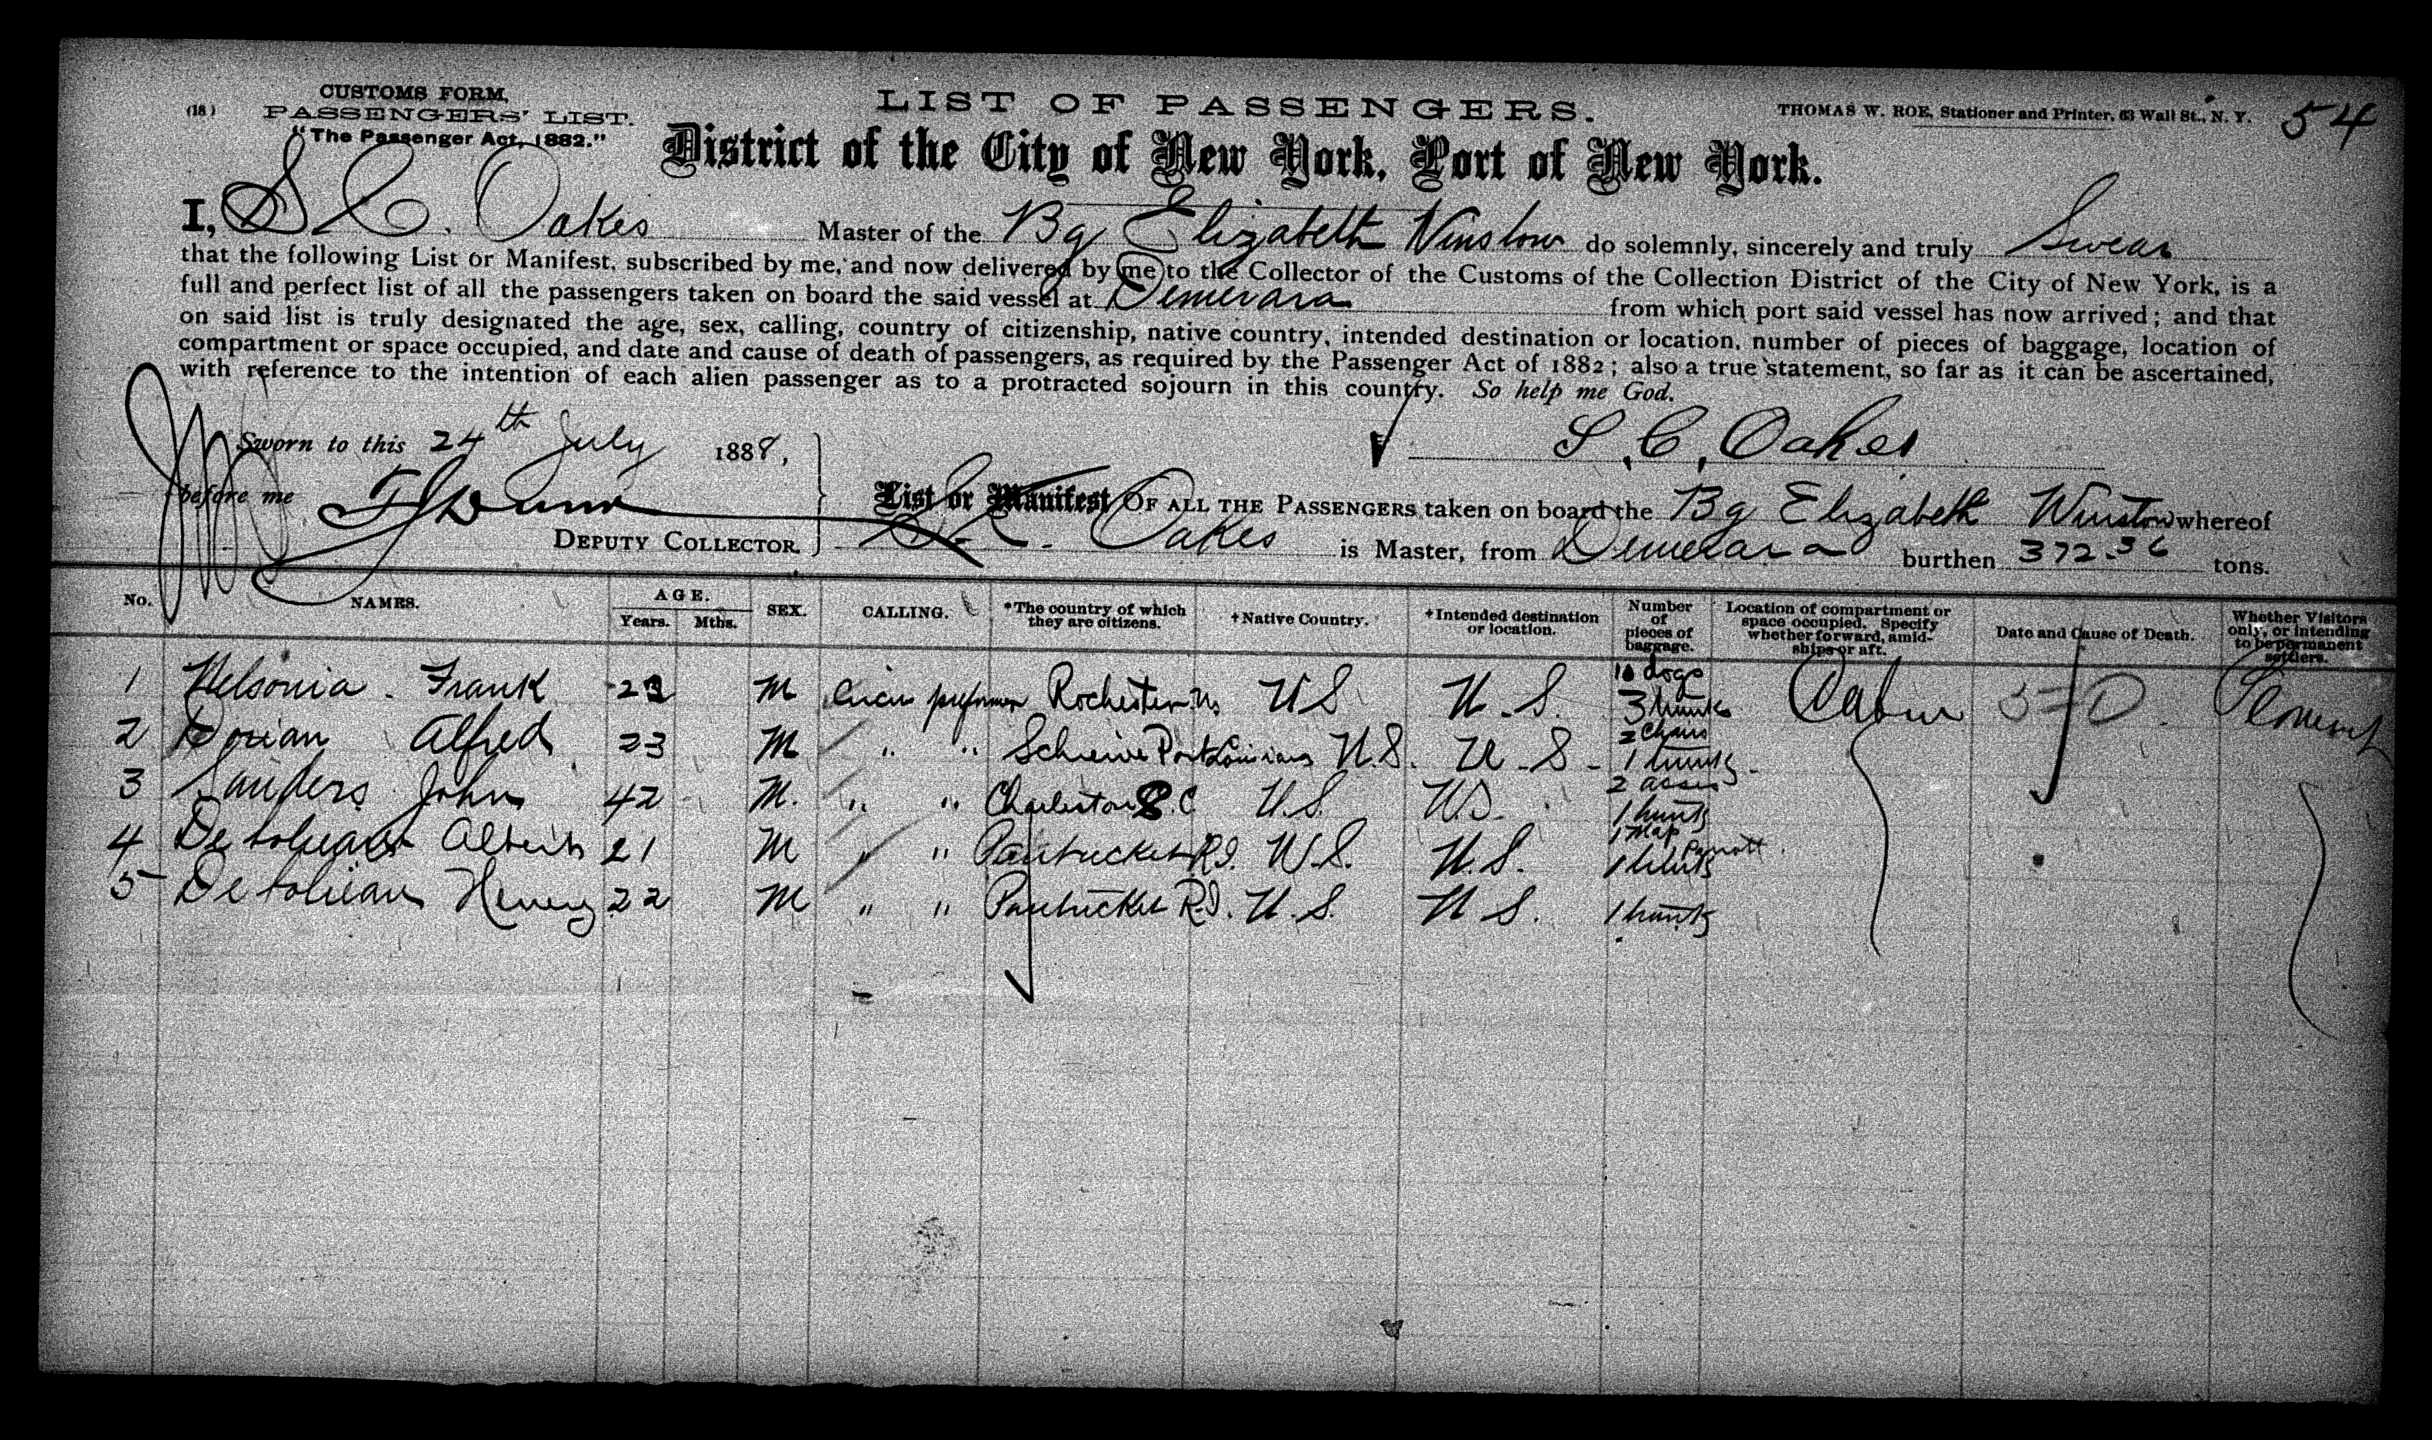 CUSTOMS FORM,
(18) PASSENGERS' LIST.
"The Passenger Act, 1882."
LIST OF PASSENGERS.
THOMAS W. ROE, Stationer and Printer, 63 Wall St., N. Y.
54
District of the City of New York, Port of New York.
I, S C. Oakes Master of the Bg Elizabeth Winslow do solemnly, sincerely and truly Swear
that the following List or Manifest, subscribed by me, and now delivered by me to the Collector of the Customs of the Collection District of the City of New York, is a
full and perfect list of all the passengers taken on board the said vessel at Demerara from which port said vessel has now arrived; and that
on said list is truly designated the age, sex, calling, country of citizenship, native country, intended destination or location, number of pieces of baggage, location of
compartment or space occupied, and date and cause of death of passengers, as required by the Passenger Act of 1882; also a true statement, so far as it can be ascertained,
with reference to the intention of each alien passenger as to a protracted sojourn in this country. So help me God.
Sworn to this 24th July 1888,
S. C. Oakes
before me
DEPUTY COLLECTOR.
List or Manifest OF ALL THE PASSENGERS taken on board the Bg Elizabeth Winslow whereof
S. C. Oakes is Master, from Demerara burthen 372.36 tons.
No. NAMES. AGE. Years. Mths. SEX. CALLING. *The country of which they are citizens. †Native Country. †Intended destination or location. Number of pieces of baggage. Location of compartment or space occupied. Specify whether forward, amidships or aft. Date and Cause of Death. Whether Visitors only, or intending to be permanent settlers.
1 Nelsonia. Frank 23 M Circus performer Rochester Ny U S U. S. 10 dogs 3 trunks Cabin
2 Dorian Alfred 23 M " " Port U. S. U. S. 2 chairs 1 trunk
3 Sanders John 42 M. " " Charleston S. C U. S. U. S. 2 asses 1 trunk
4 Albert 21 M " " Pawtucket R. I. U. S. U. S. 1 Parrott 1 trunk
5 Henery 22 M " " Pawtucket R. I. U. S. U S. 1 trunk